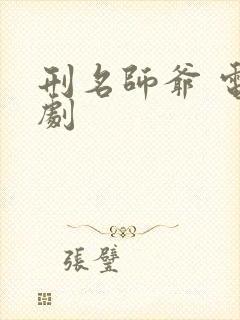 刑名師爺 電
劇
張璧